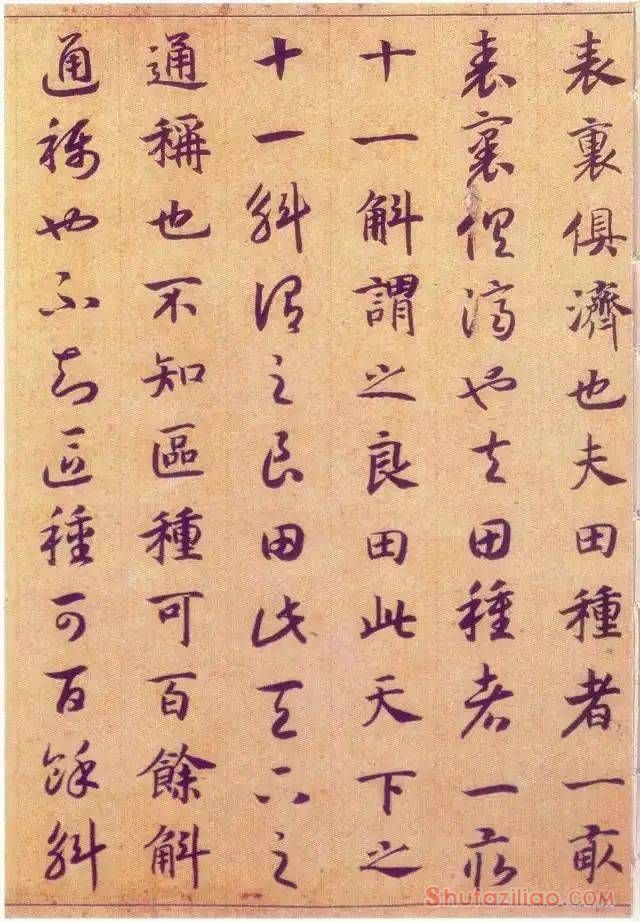 表裏俱濟也夫田種者一畝
表裏俱濟也夫田種者一畝
十一斛謂之良田此天下之
十一斛謂之良田此天下之
通稱也不知區種可百餘斛
通稱也不知區種可百餘斛
Shufaziliao.com